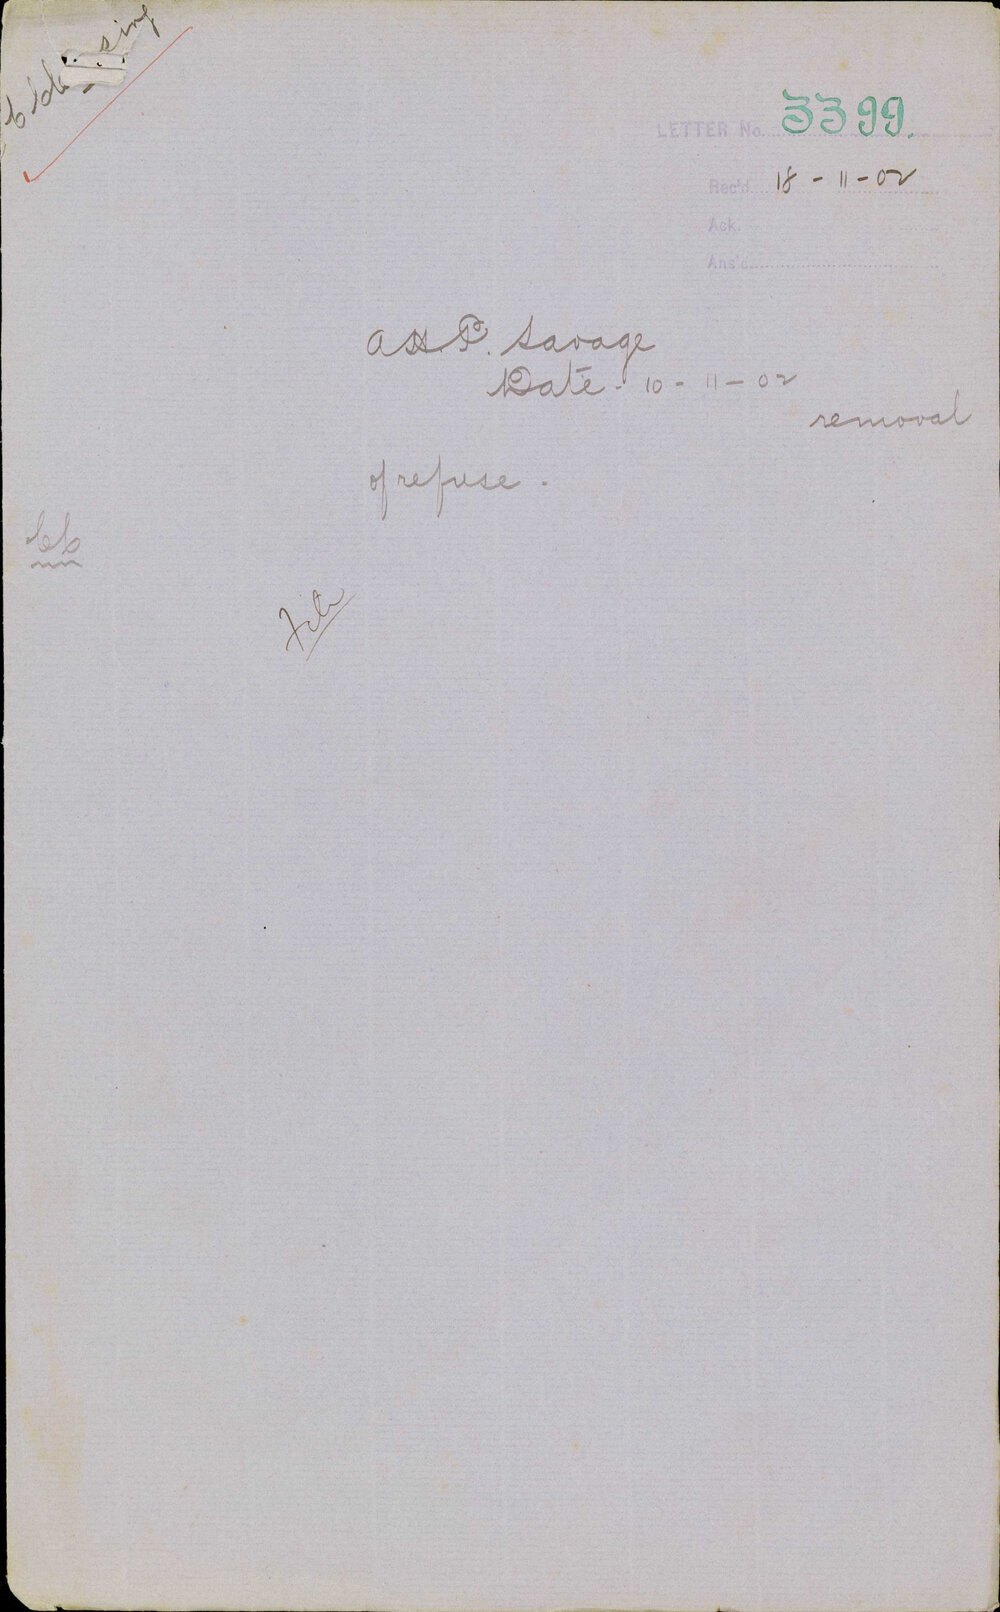 LETTER No. 3399.
Rec'd 18-11-02
Ack.
Ans'd
A.H.P. Savage
Date. 10-11-02
removal
of refuse.
File